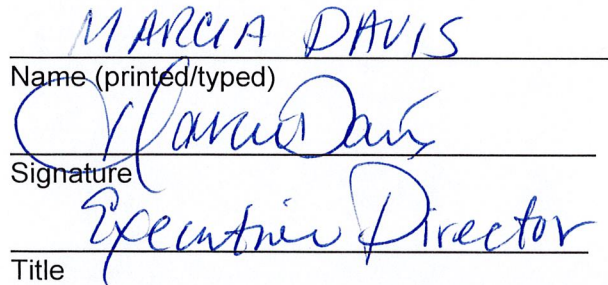 MARCIA DAVIS
Name (printed/typed)
Marcia Davis
Signature
Executive Director
Title